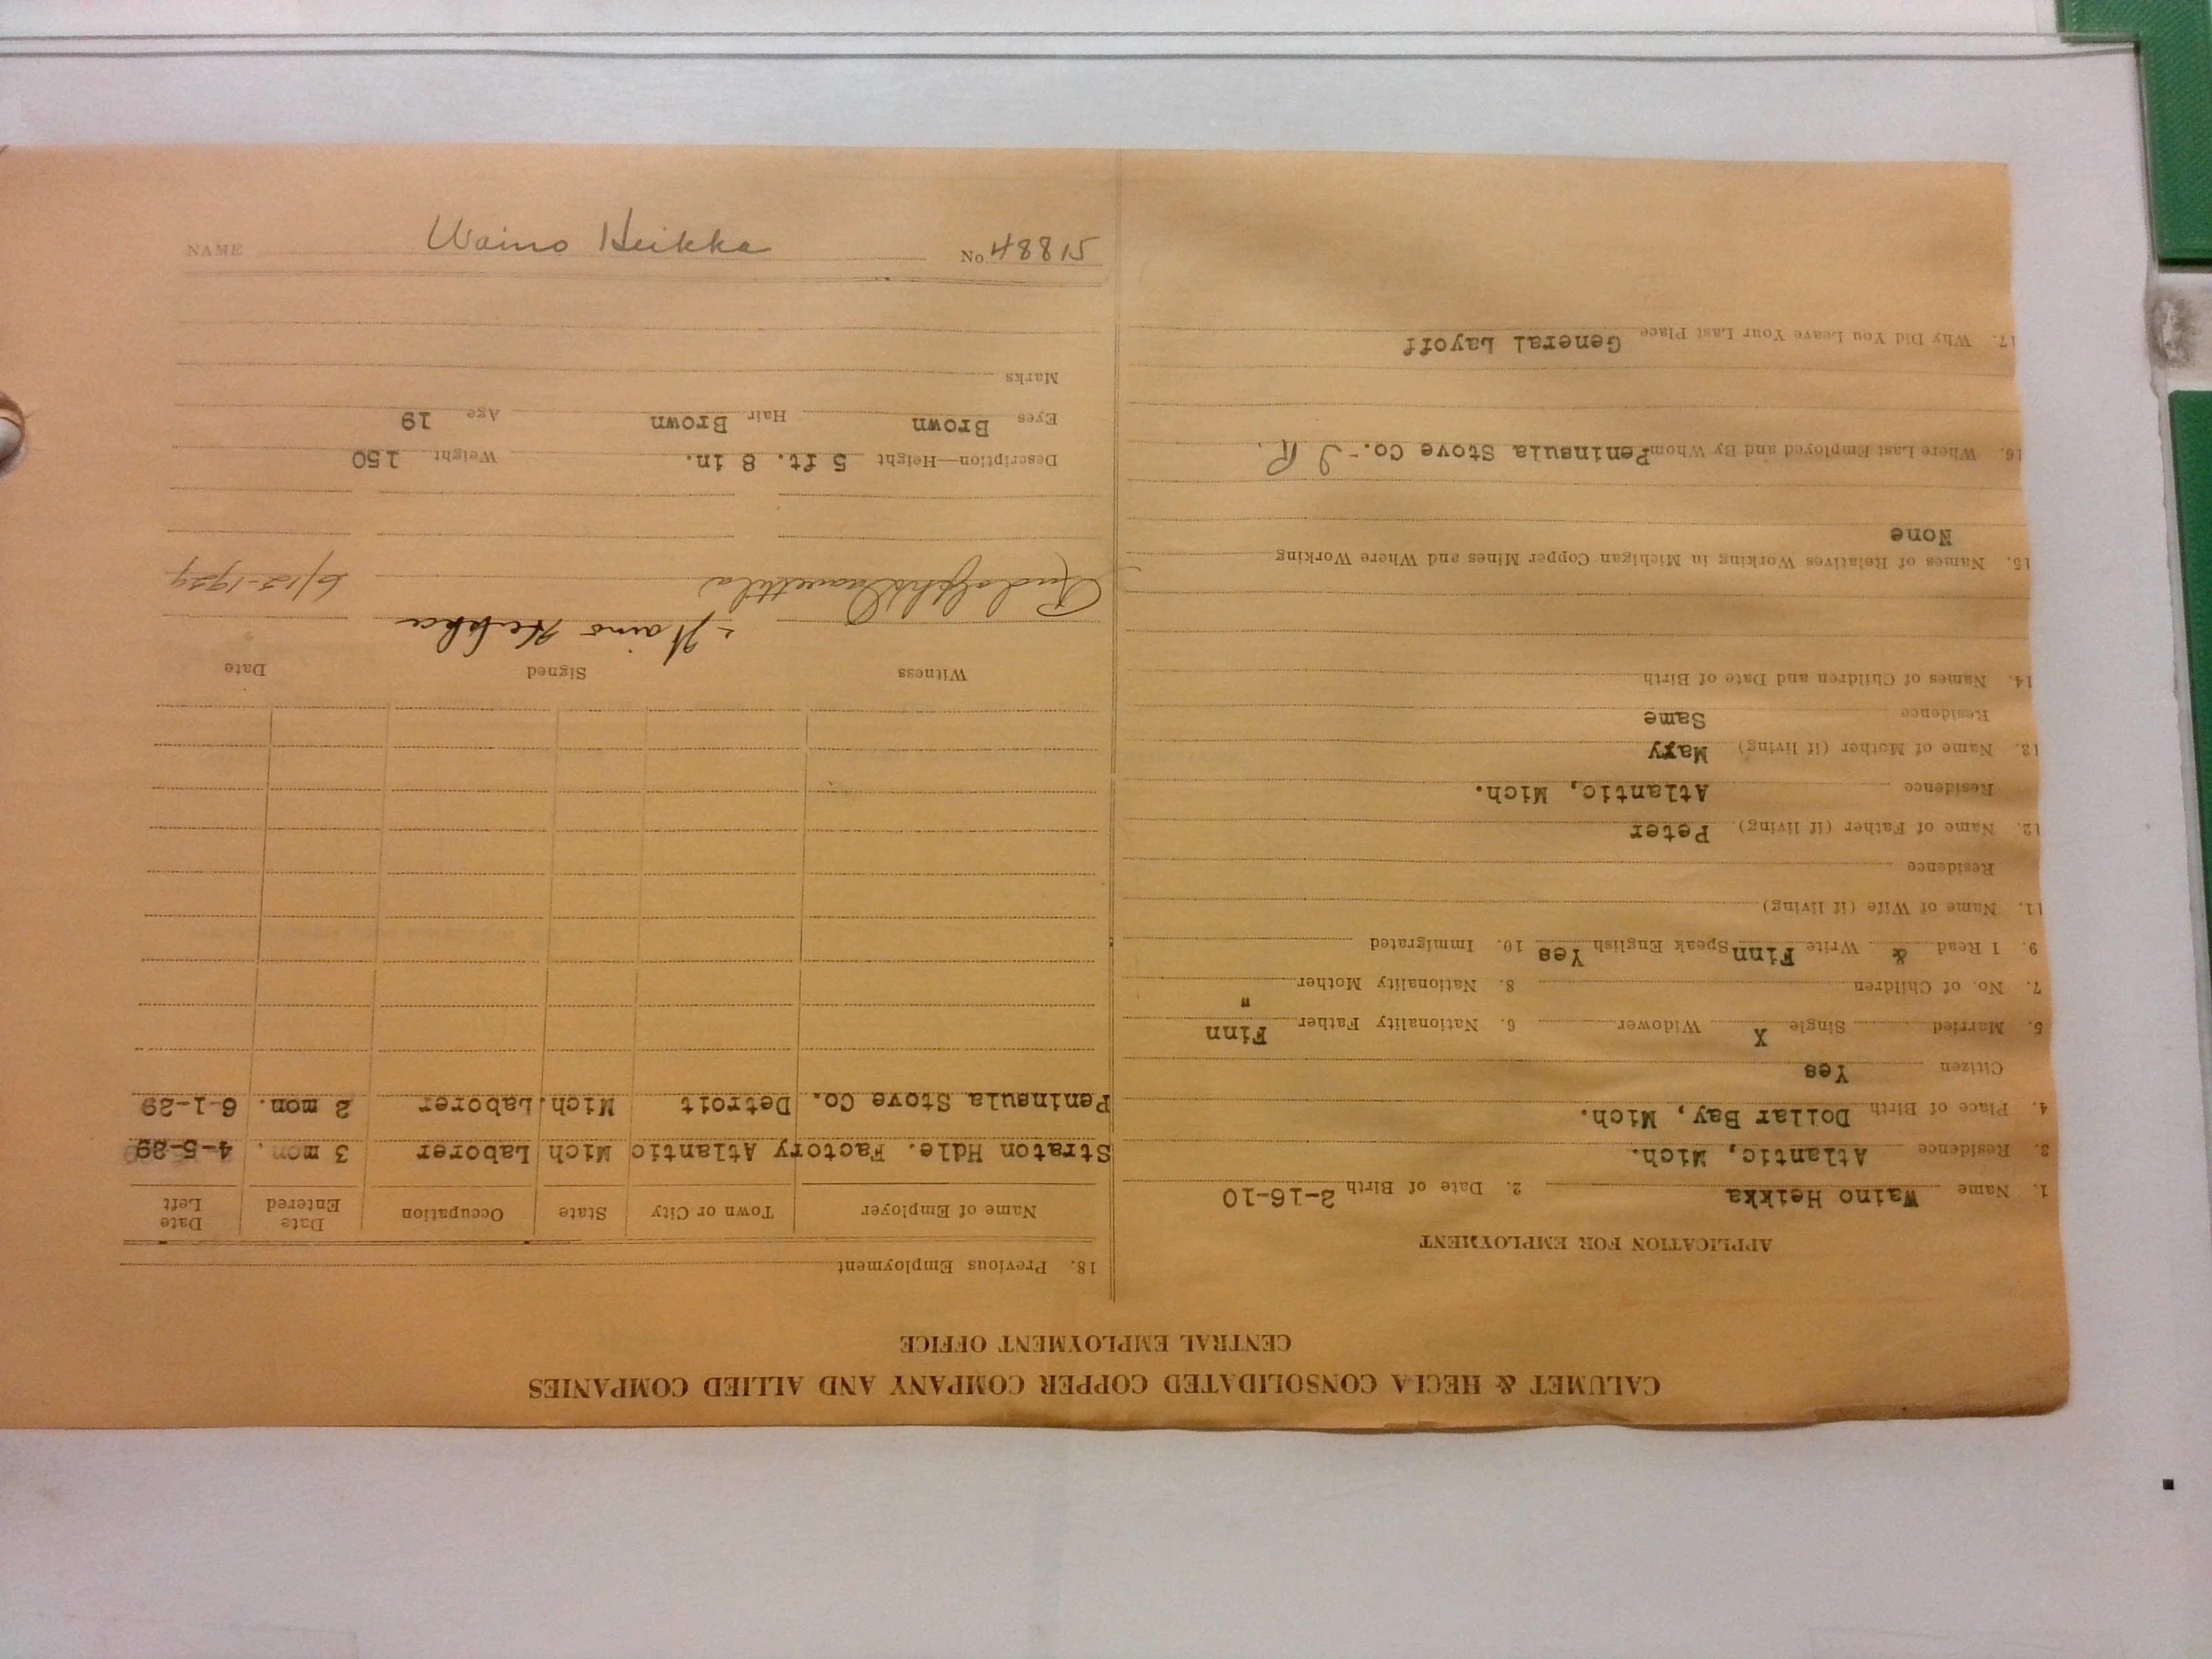 CALUMET & HECLA CONSOLIDATED COPPER COMPANY AND ALLIED COMPANIES
CENTRAL EMPLOYMENT OFFICE
APPLICATION FOR EMPLOYMENT
1. Name Waino Heikka 2. Date of Birth 2-16-10
3. Residence Atlantic, Mich.
4. Place of Birth Dollar Bay, Mich.
Citizen Yes
5. Married Single X Widower 6. Nationality Father Finn
7. No. of Children 8. Nationality Mother "
9. I Read & Write Finn Speak English Yes 10. Immigrated
11. Name of Wife (if living)
Residence
12. Name of Father (if living) Peter
Residence Atlantic, Mich.
13. Name of Mother (if living) Mary
Residence Same
14. Names of Children and Date of Birth
15. Names of Relatives Working in Michigan Copper Mines and Where Working
None
16. Where Last Employed and By Whom Peninsula Stove Co.
17. Why Did You Leave Your Last Place General Layoff
18. Previous Employment
Name of Employer Town or City State Occupation Date Entered Date Left
Straton Hdle. Factory Atlantic Mich Laborer 3 mon. 4-5-29
Peninsula Stove Co. Detroit Mich. Laborer 2 mon. 6-1-29
Witness Signed Date
Waino Heikka
Rudolph 6/12-1929
Description—Height 5 ft. 8 in. Weight 150
Eyes Brown Hair Brown Age 19
Marks
NAME Waino Heikka No. 48815